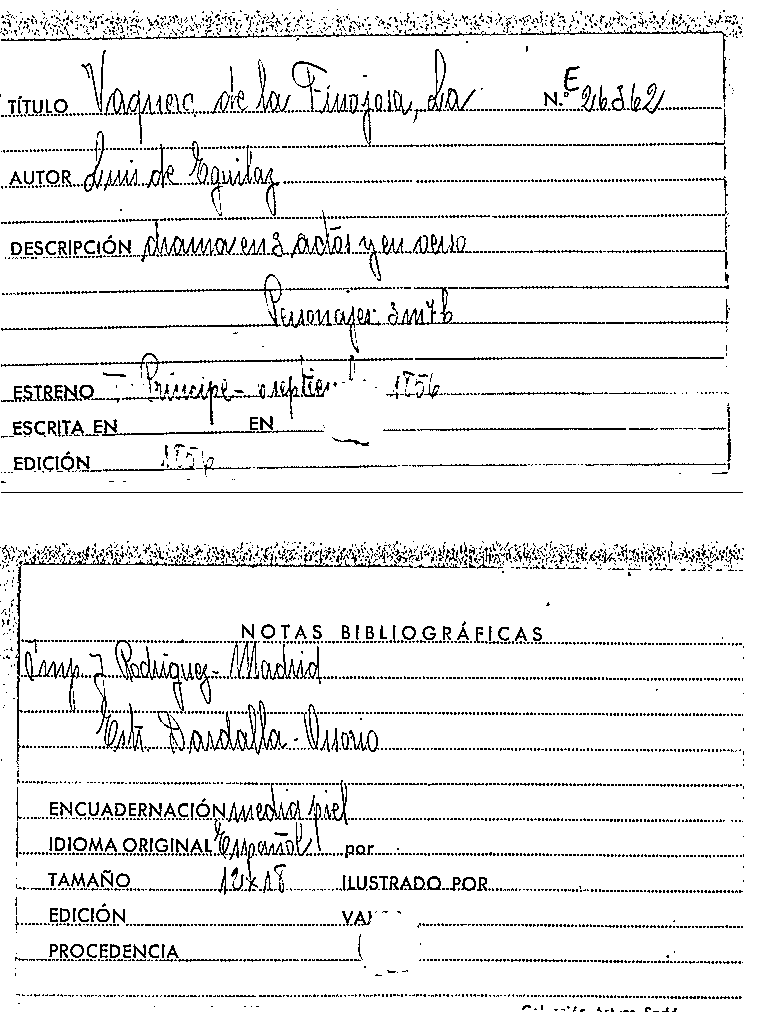 TÍTULO Vaquera de la Finojosa, La N.º E 26362
AUTOR Luis de Eguilaz
DESCRIPCIÓN drama en 3 actos y en verso
Personajes: 3m 7h
ESTRENO T. Príncipe - septiem 1856
ESCRITA EN EN
EDICIÓN 1856
NOTAS BIBLIOGRÁFICAS
Imp. J Rodríguez - Madrid
Estr. Dardalla - Osorio
ENCUADERNACIÓN media piel
IDIOMA ORIGINAL Español por
TAMAÑO 12x18 ILUSTRADO POR
EDICIÓN
PROCEDENCIA